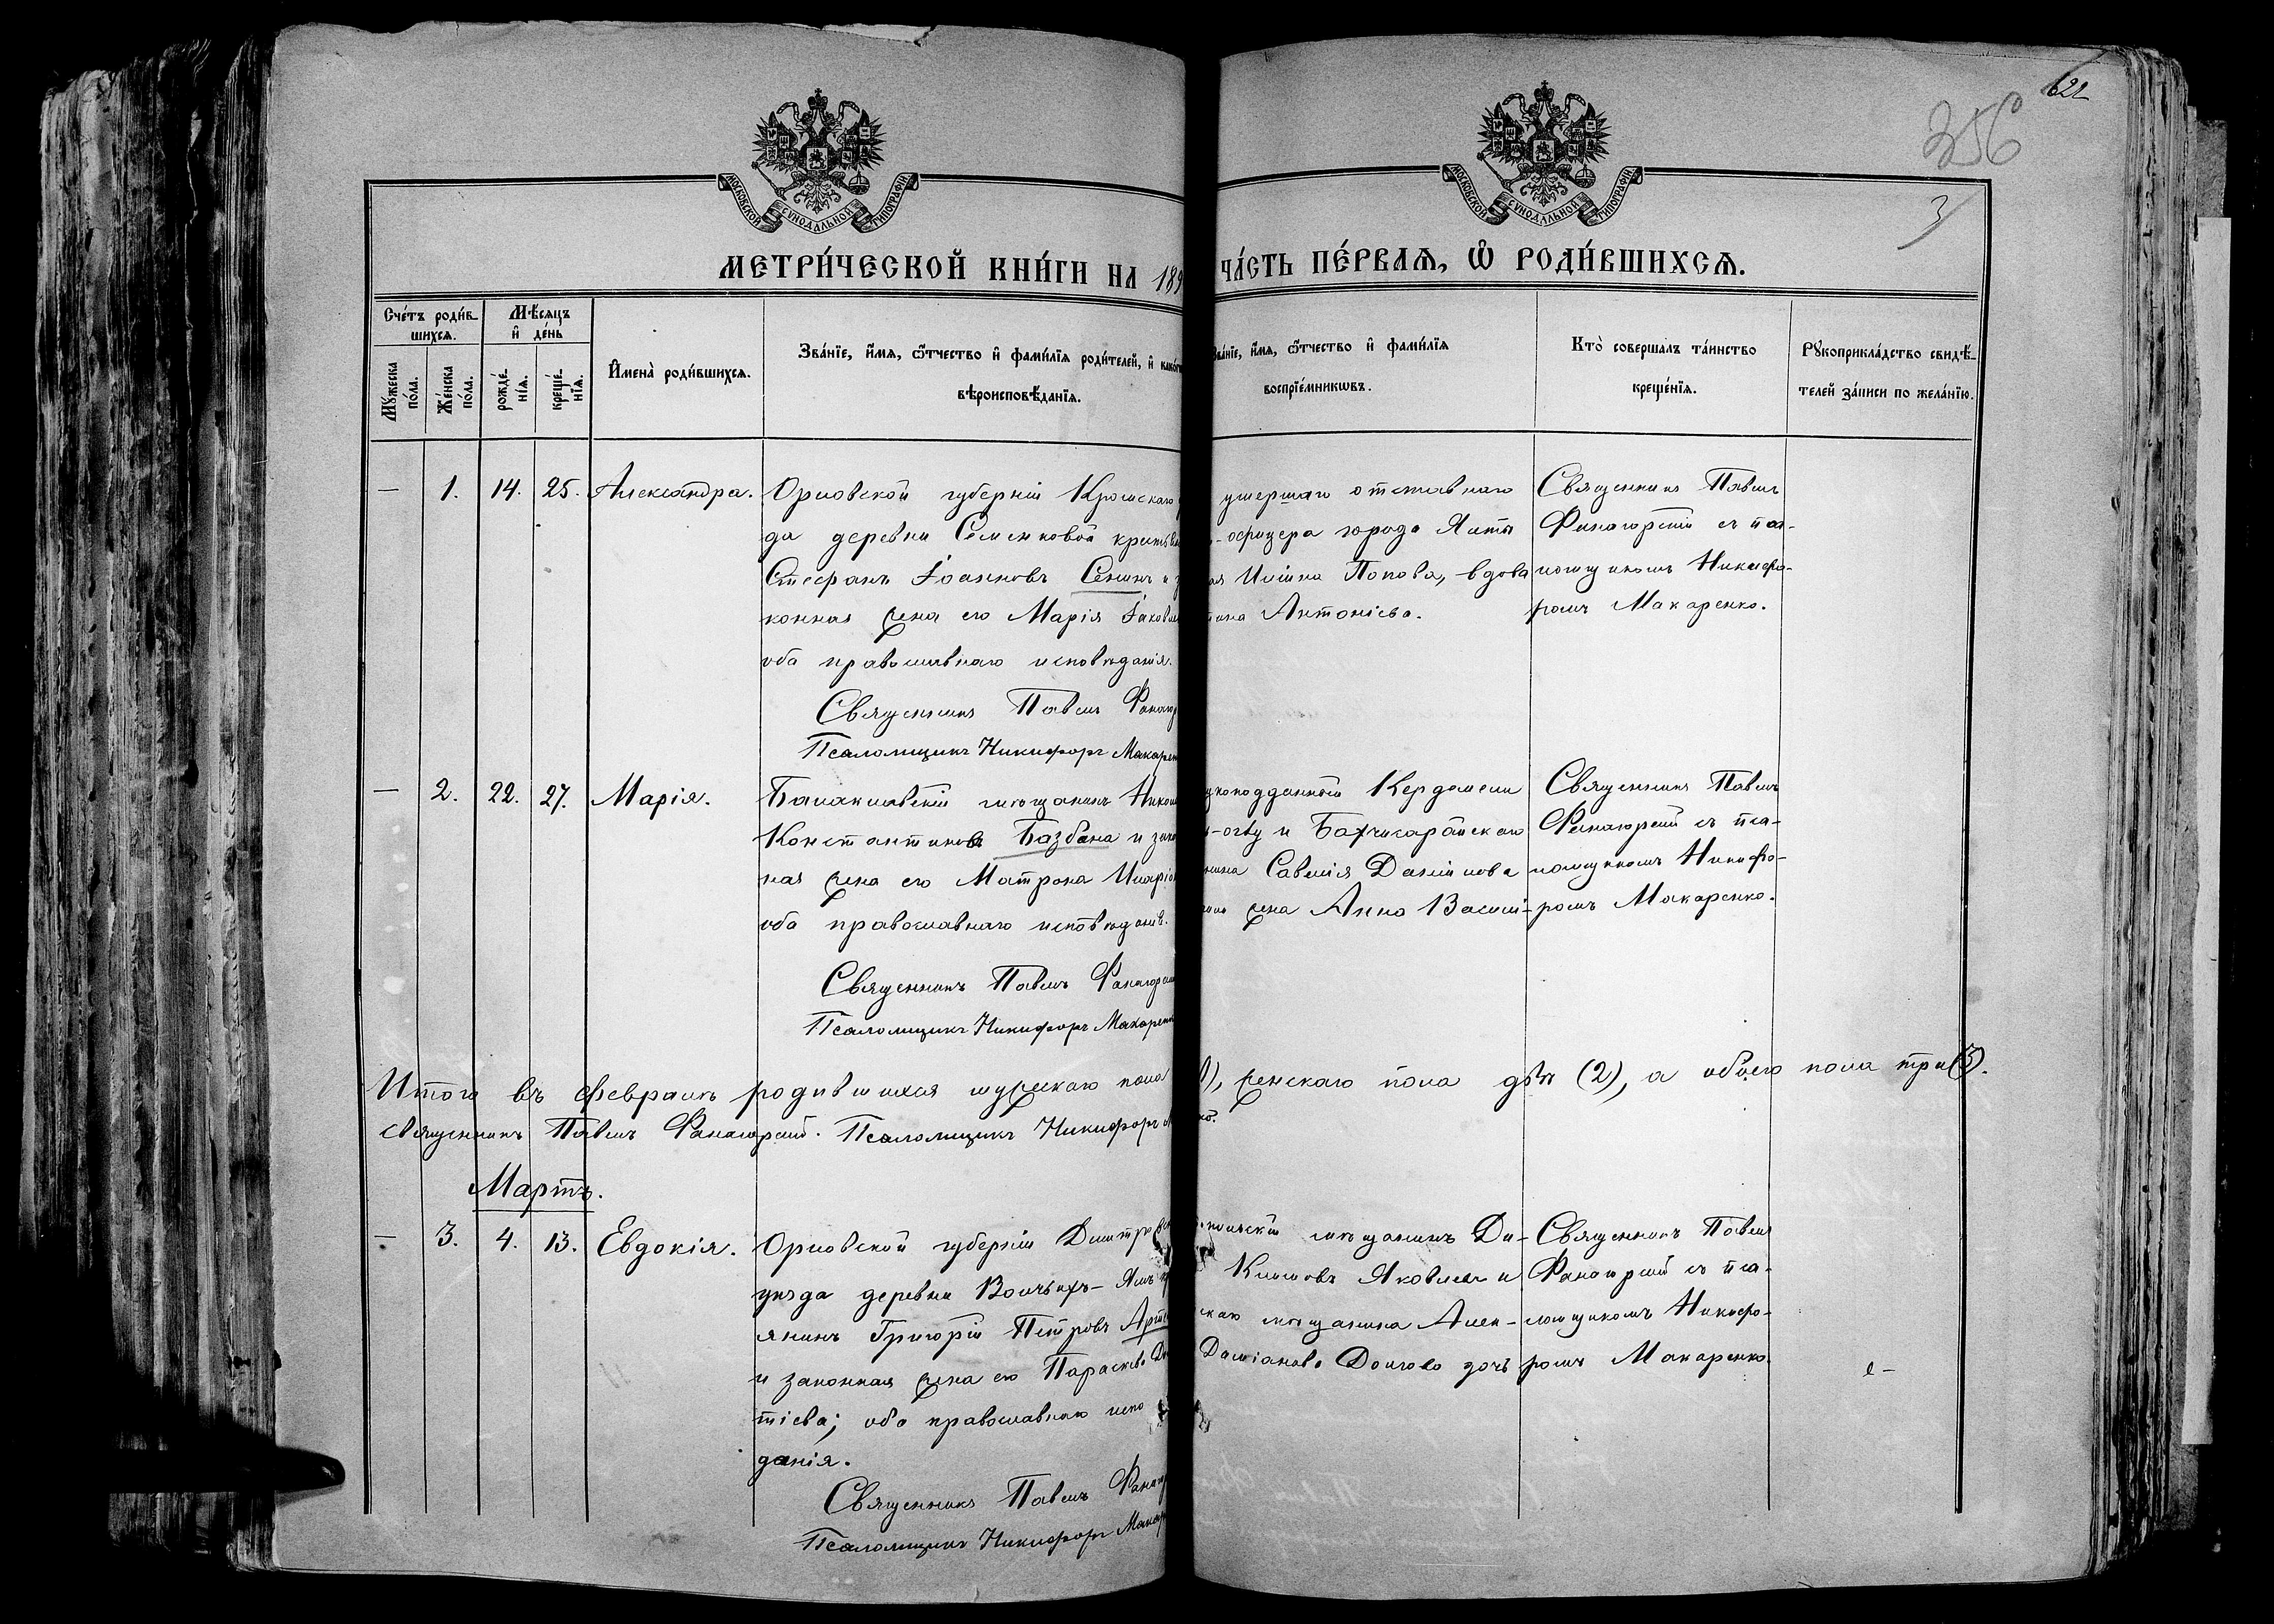 621
356
3
МОСКОВСКОЙ СУНОДАЛЬНОЙ ТИПОГРАФІИ
МОСКОВСКОЙ СУНОДАЛЬНОЙ ТИПОГРАФІИ
МЕТРИ́ЧЕСКОЙ КНИ́ГИ НА 189
ЧА́СТЬ ПЕ́РВАЯ, Ѡ҆ РОДИ́ВШИХСЯ.
Сче́тъ роди́в-
шихся.
Мѣ́сяцъ
и҆ де́нь
Му́жеска по́ла.
Же́нска по́ла.
рожде́-
нїя.
креще́-
нїя.
И҆мена̀ роди́вшихся.
Зва́нїе, и҆́мя, ѻ҆́тчество и҆ фами́лїя роди́телей, и҆ како́г
вѣроисповѣ́данїя.
Зва́нїе, и҆́мя, ѻ҆́тчество и҆ фами́лїя
воспрїе́мникѡвъ.
Кто̀ соверша́лъ та́инство
креще́нїя.
Рꙋкоприкла́дство свидѣ́-
телей за́писи по жела́нїю.
— 1. 14. 25. Александра.
Орловской губерніи Кромскаго
да деревни Семенковой крестья
Стефанъ Іоанновъ Сенинъ и за
конная жена его Марія Іаковл
оба православнаго исповѣданія.
Священникъ Павелъ Фанаг
Псаломщикъ Никифоръ Макарен
умершаго отставнаго
-офицера города Ялты
Попова, вдова
Антоніева.
Священникъ Павелъ
Фанагорскій съ пса-
ломщикомъ Никифо-
ромъ Макаренко.
— 2. 22. 27. Марія.
Балаклавскій мѣщанинъ Никол
Константиновъ Базбана и закон
ная жена его Матрона Иларіо
оба православнаго исповѣданія.
Священникъ Павелъ Фанагорск
Псаломщикъ Никифоръ Макаренк
коподданный
-оглу и Бахчисарайскаго
нина Савелія Даніилова
жена Анна Васил-
Священникъ Павелъ
Фанагорскій съ пса-
ломщикомъ Никифо-
ромъ Макаренко.
Итого въ февралѣ родившихся мужескаго пола
1), женскаго пола двѣ (2), а обоего пола три (3).
Священникъ Павелъ Фанагорскій. Псаломщикъ Никифоръ М
ко.
Мартъ.
— 3. 4. 13. Евдокія.
Орловской губерніи Дмитров
уѣзда деревни Волчьихъ-Ямъ
янинъ Григорій Петровъ Арт
и законная жена его Параскева
тіева; оба православнаго испо
данія.
Священникъ Павелъ Фанаго
Псаломщикъ Никифоръ Макар
мѣщанинъ Ди-
Климовъ Яковлевъ и
скаго мѣщанина Алек-
Даміанова Долгова дочь
Священникъ Павелъ
Фанагорскій съ пса-
ломщикомъ Никифо-
ромъ Макаренко.